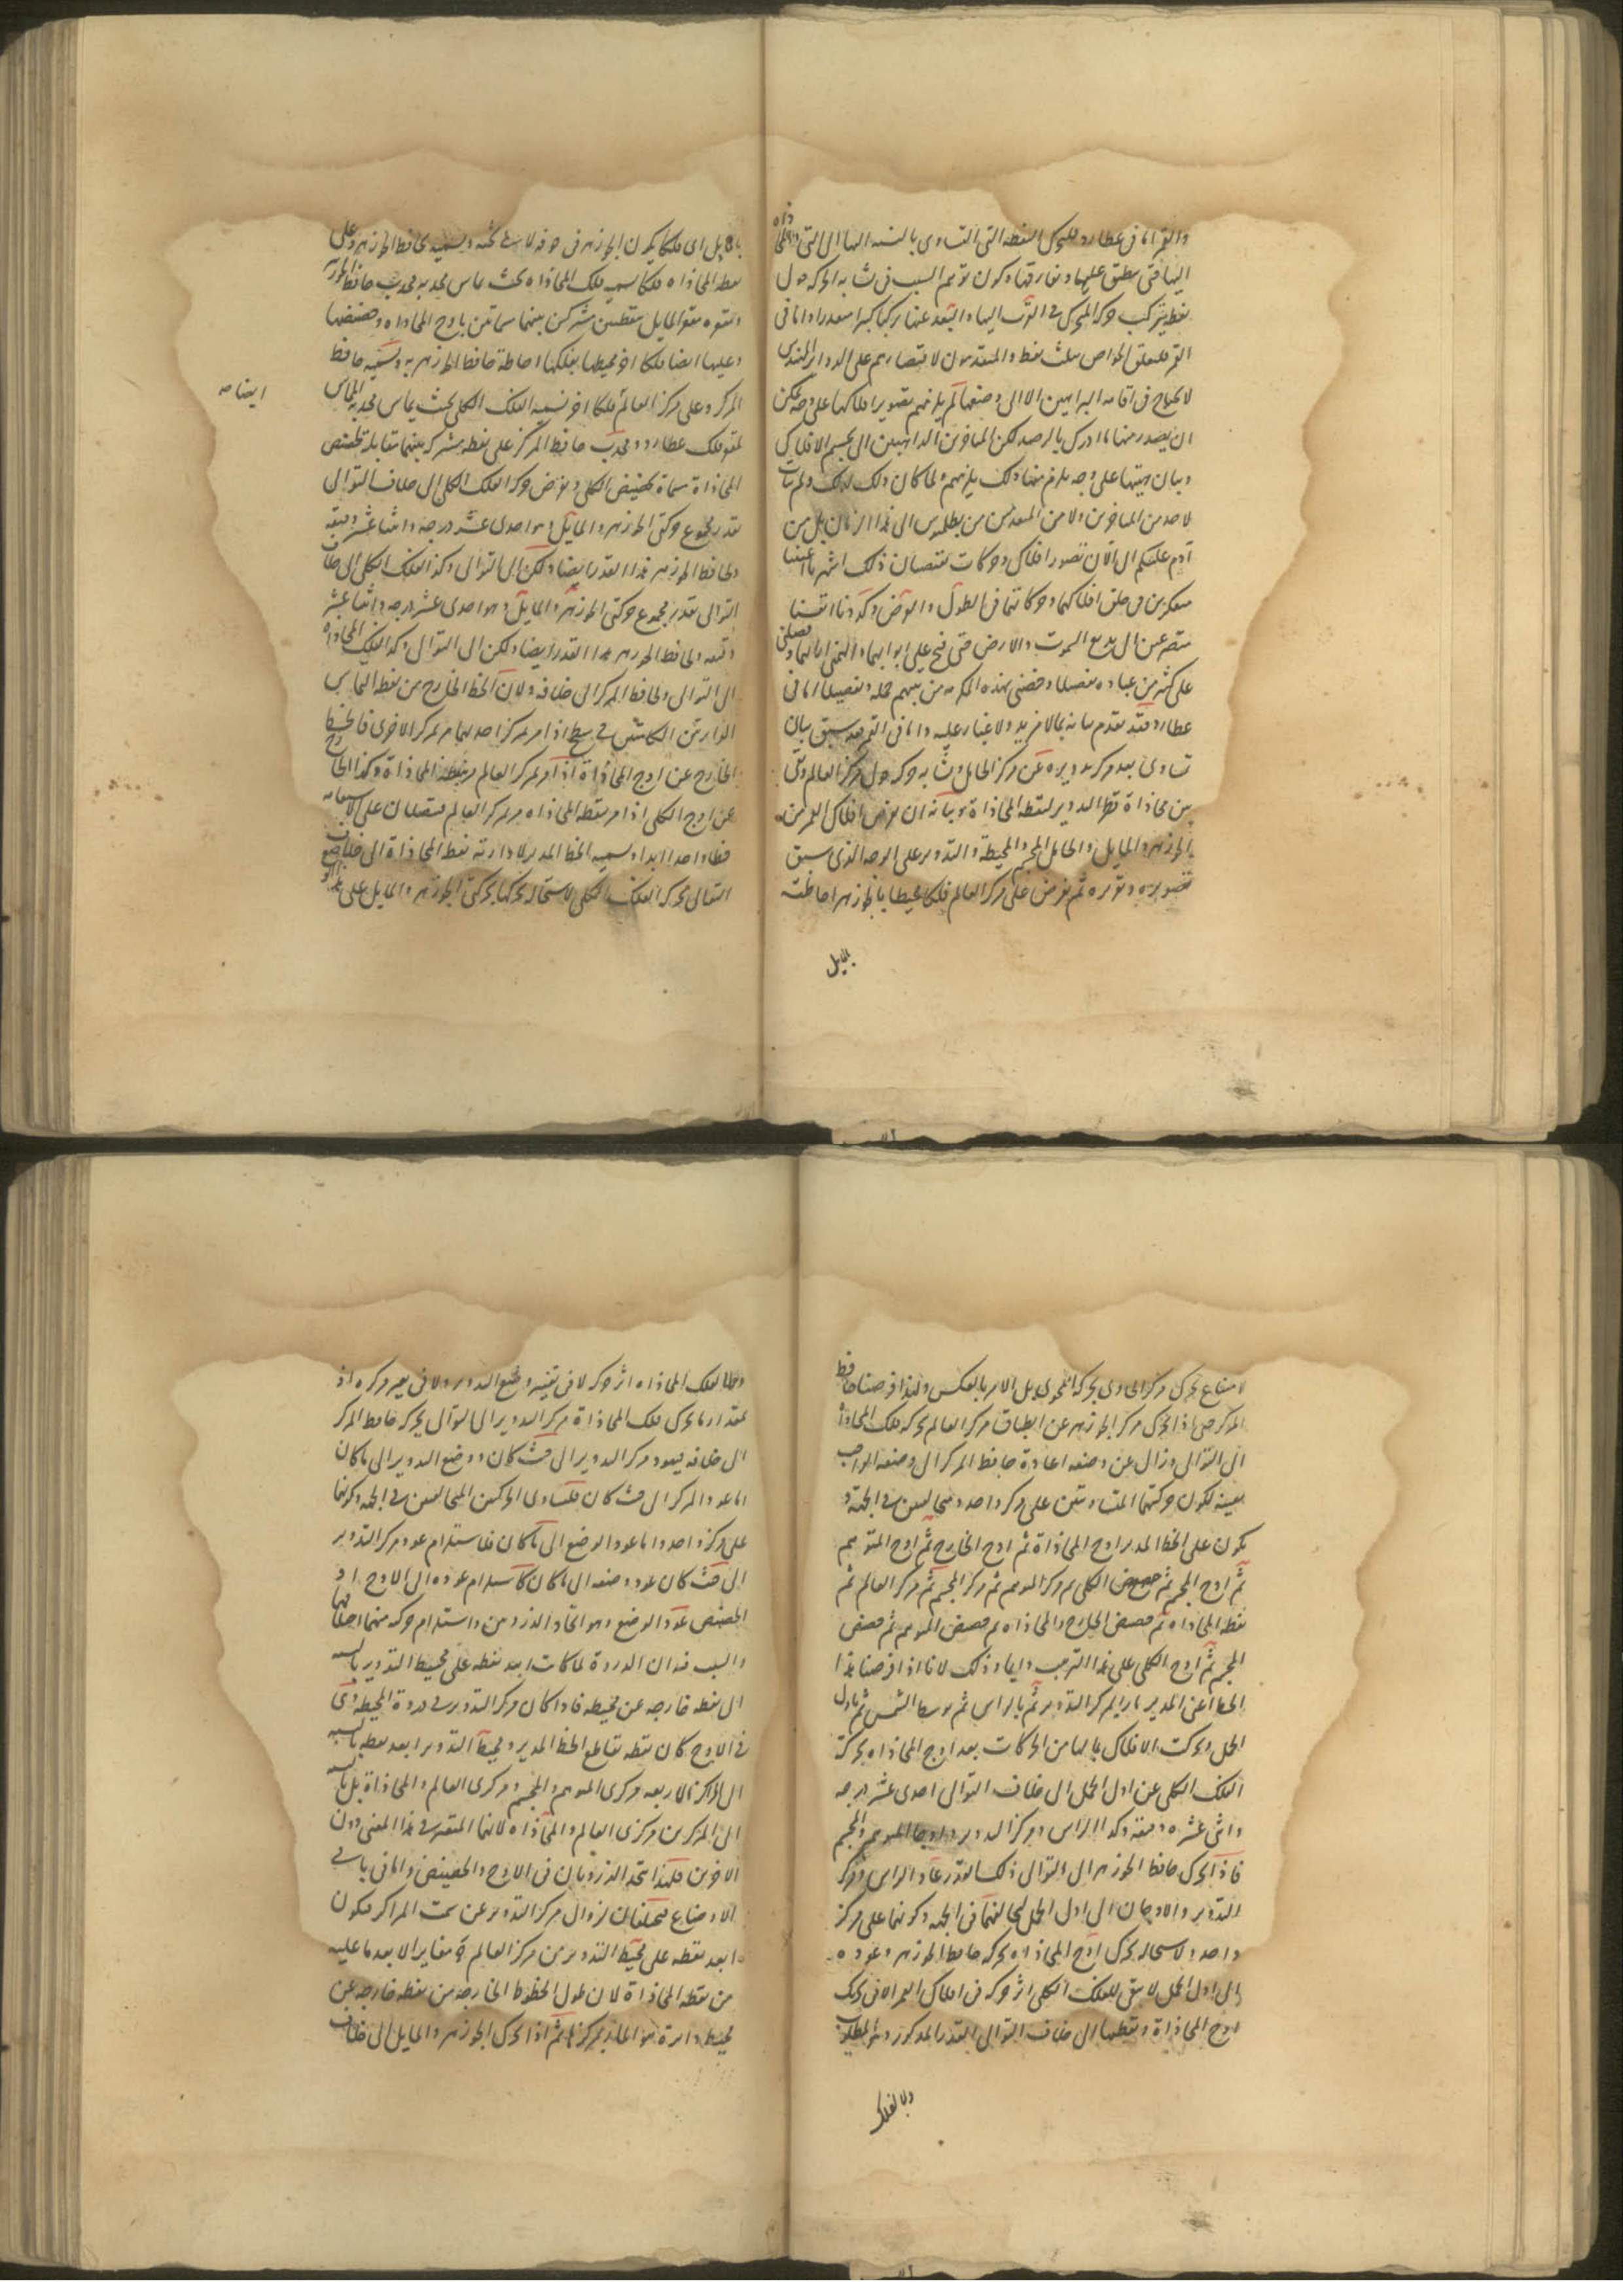 والقمر اما فى عطارد فلتحرك النقطة التى التساوى بالنسبة اليها الى التى المحاذاة
اليها حتى ينطبق عليها وتفارقها وكون توهم السبب فى تشابه الحركة حول
نقطة تركب حركة المتحرك فى القرب اليها والبعد عنها تركبا كبرا مقدرا واما فى
القمر فلتعلق الخواص بثلث نقط والمتقدمون لاقتصارهم على الدوائر المقتدى
لا يحتاج فى اقامة البراهين الا الى وضعها لم يلزمهم تصوير افلاكها على وجه يمكن
ان يصدر منها ما ادرك بالرصد لكن المتاخرين الذاهبين الى تجسيم الافلاك
وبيان هيئتها على وجه يلزم منها ذلك يلزمهم ولما كان ذلك كذلك ولم يتأت
لاحد من المتاخرين ولا من المتقدمين من بطلميوس الى هذا الزمان بل من
آدم عليكم الى الآن تصور افلاك وحركات تقتضيان ذلك اشهرنا اعيننا
متفكرين فى خلق افلاكهما وحركاتهما فى الطول والعرض وكددنا انفسنا
متضرعين الى بديع السموت والارض حتى فتح على ابوابهما والهمنى اياهما وفضلنى
على كثير من عباده تفضيلا وخصنى بهذه المكرمة من بينهم جملة وتفصيلا اما فى
عطارد فقد تقدم بيانه بما لا مزيد ولا غبار عليه واما فى القمر فقد سبق بيان
تساوى بعد مركز تدويره عن مركز الحامل وتشابه حركته حول مركز العالم وبقى
بين محاذاة قطر التدوير لنقطة المحاذاة وبيانه ان نفرض افلاك القمر من
الجوزهر والمايل والحامل المجسم والمحيطة والتدوير على الوجه الذى سبق
تصويره وتقريره ثم نفرض على مركز العالم فلكا محيطا بالجوزهر احاطته
بالمايل
بالمايل اى فلكا يكون الجوزهر فى جوفه لا فى ثخنه ونسميه حافظ الجوزهر وعلى
نقطة المحاذاة فلكا نسميه فلك المحاذاة بحيث يماس محدبه محدب حافظ الجوزهر
ومقعره مقعر المايل بنقطتين مشتركتين بينهما مسماتين باوج المحاذاة وحضيضها
وعليها ايضا فلكا اخر محيطا بفلكها احاطة حافظ الجوزهر به ونسميه حافظ
المركز وعلى مركز العالم فلكا اخر نسميه الفلك الكلى بحيث يماس محدبه المماس
لمقعر فلك عطارد ومحدب حافظ المركز على نقطة مشتركة بينهما مقابلة لحضيض
المحاذاة مسماة بحضيض الكلى ونفرض حركة الفلك الكلى الى خلاف التوالى
بقدر مجموع حركتى الجوزهر والمايل وهو احدى عشر درجة واثنا عشر دقيقة
ولحافظ الجوزهر هذا القدر ايضا ولكن الى التوالى وكذا الفلك الكلى الى خلاف
التوالى بقدر مجموع حركتى الجوزهر والمايل وهو احدى عشر درجة واثنا عشر
دقيقة ولحافظ الجوزهر هذا القدر ايضا ولكن الى التوالى وكذا لفلك المحاذاة
الى التوالى ولحافظ المركز الى خلافه ولان الخط الخارج من نقطة التماس
الدايرتين الكائنتين فى سطح اذا مر بمركز احدهما مر بمركز الاخرى فالخط
الخارج عن اوج المحاذاة اذا مر بمركز العالم مر بنقطة المحاذاة وكذا الخارج
عن اوج الكلى اذا مر بنقطة المحاذاة مر بمركز العالم فيتصلان على الاستقامة
خطا واحدا ابدا ونسميه الخط المدير لادارته نقط المحاذاة الى خلاف
التوالى بحركة الفلك الكلى لاستحالة تحركها بحركتى الجوزهر والمايل على
ايضا صه
لامتناع تحرك مركز الحاوى بحركة المحوى بل الامر بالعكس ولهذا فرضنا حافظ
المركز حتى اذا تحرك مركز الجوزهر عن انطباق مركز العالم بحركة فلك المحاذاة
الى التوالى وزال عن وضعه اعاده حافظ المركز الى وضعه الواجب
بعينه لكون حركتهما المتساويتين على مركز واحد ومتخالفتين فى الجهة و
يكون على الخط المدير اوج المحاذاة ثم اوج الخارج ثم اوج المتوهم
ثم اوج المجسم ثم حضيض الكلى ثم مركز المتوهم ثم مركز المجسم ثم مركز العالم ثم
نقطة المحاذاة ثم حضيض الخارج والمحاذاة ثم حضيض المتوهم ثم حضيض
المجسم ثم اوج الكلى على هذا الترتيب دايما وذلك لانا اذا فرضنا هذا
الخط اعنى المدير مارا بمركز التدوير ثم بالراس ثم بوسط الشمس ثم باول
الحمل وتحركت الافلاك بما لها من الحركات بعد اوج المحاذاة بحركة
الفلك الكلى عن اول الحمل الى خلاف التوالى احدى عشر درجة
واثنى عشرة دقيقة وكذا الراس ومركز التدوير واوجا المتوهم والمجسم
فاذا تحرك حافظ الجوزهر الى التوالى ذلك القدر عاد الراس ومركز
التدوير والاوجان الى اول الحمل لتخالفهما فى الجهة وكونهما على مركز
واحد ولاستحالة تحرك اوج المحاذاة بحركة حافظ الجوزهر وعوده
الى اول الحمل لا يبقى للفلك الكلى اثر حركة فى افلاك القمر الا فى تحريك
اوج المحاذاة ونقطتها الى خلاف التوالى القدر المذكور وهو المطلوب
ولا لفلك
ولا لفلك المحاذاة اثر حركة لا فى تغيير وضع التدوير ولا فى تغير مركزه اذ
بمقدار ما يحرك فلك المحاذاة مركز التدوير الى التوالى يحركه حافظ المركز
الى خلافه فيعود مركز التدوير الى حيث كان ووضع التدوير الى ما كان
اما عود المركز الى حيث كان فلتساوى الحركتين المتخالفتين فى الجهة وكونهما
على مركز واحد واما عود الوضع الى ما كان فلاستلزام عود مركز التدوير
الى حيث كان عود وضعه الى ما كان كاستلزام عوده الى الاوج او
الحضيض عود الوضع وهو اتحاد الذروتين واستلزام حركته منهما اختلافهما
والسبب فيه ان الذروة لما كانت ابعد نقطة على محيط التدوير بالنسبة
الى نقطة خارجة عن محيطه فاذا كان مركز التدوير فى ذروة المحيطة وهى
فى الاوج كان نقطة تقاطع الخط المدير ومحيط التدوير ابعد نقطة بالنسبة
الى المراكز الاربعة مركزى المتوهم والمجسم ومركزى العالم والمحاذاة بل بالنسبة
الى المركزين مركزى العالم والمحاذاة لانهما المعتبر فى هذا المعنى دون
الاخرين فلهذا يتحد الذروتان فى الاوج والحضيض واما فى باقى
الاوضاع فيختلفان لزوال مركز التدوير عن سمت المراكز فيكون
ابعد نقطة على محيط التدوير من مركز العالم مغايرا لابعد ما عليه
من نقطة المحاذاة لان طول الخطوط الخارجة من نقطة خارجة عن
محيط دايرة هو المار بمركزها ثم اذا تحرك الجوزهر والمايل الى خلاف